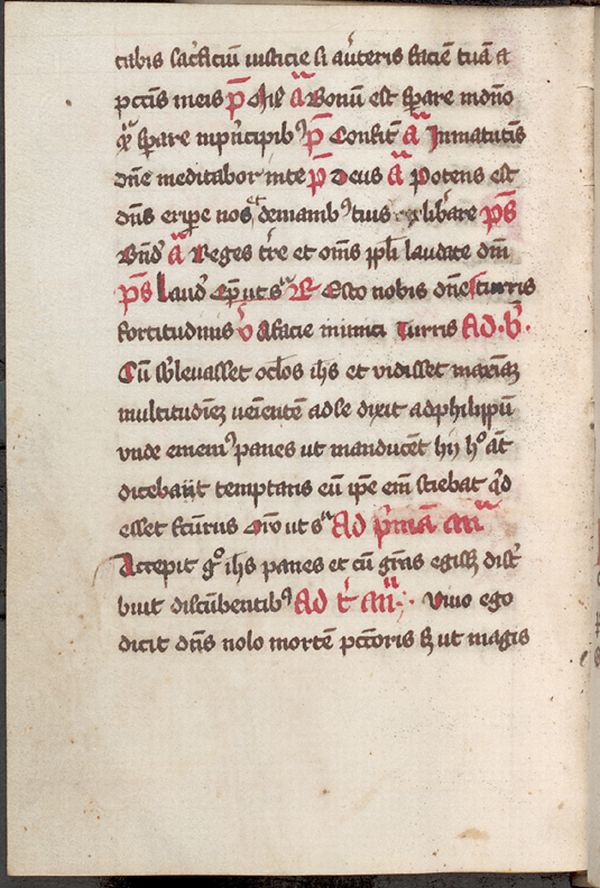 tabis sac̄ficiū iusticie si au̓teris faciē tuā a
pcc̄is meis p̄ Mis̄ a᷑ Bonū est sꝑare in dn̄o
qͣ sꝑare in pⁱncipibꝰ p̄ Confit̄ a᷑ In matutīs
dn̄e meditabor in te p̄ Deus a᷑ Potens est
dn̄s eriꝑe nos et de manibꝰ tuis liƀare ps̄
Bn̄d̓ a᷑ Reges tr̄e et om̄s ppl̄i laudate dn̄m
ps̄ Laud̓ Cap̄ ut sͣ R̄ Esto nobis dn̄e turris
fortitudinis v̄ A facie inimici Turris Ad · b̄ ·
Cū sb̓levasset oc̄los ihs et vidisset maximā
multitudinē venientē ad se dixit ad philippū
vnde ememꝰ panes ut manducēt hij hͦ aūt
dicebat temptans eū ip̄e em̄ sciebat qͥd
esset fc̄turus Oro ut sͣ Ad pⁱmā an̄
Accepit gͦ ihs panes et cū gr̄as egisset distⁱ
buit discūbentibꝰ Ad t̓ an̄ · Vivo ego
dicit dn̄s nolo mortē pcc̄oris sꝫ ut magis